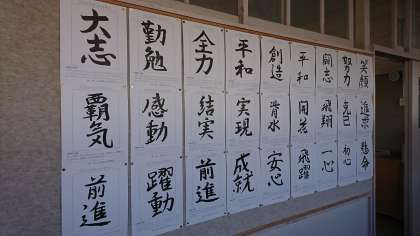 大志
勤勉
全力
平和
創造
平和
闘志
努力
笑顔
覇気
感動
結実
実現
背水
開花
飛翔
克己
進歩
前進
躍動
前進
成就
安心
飛躍
一心
初心
懸命